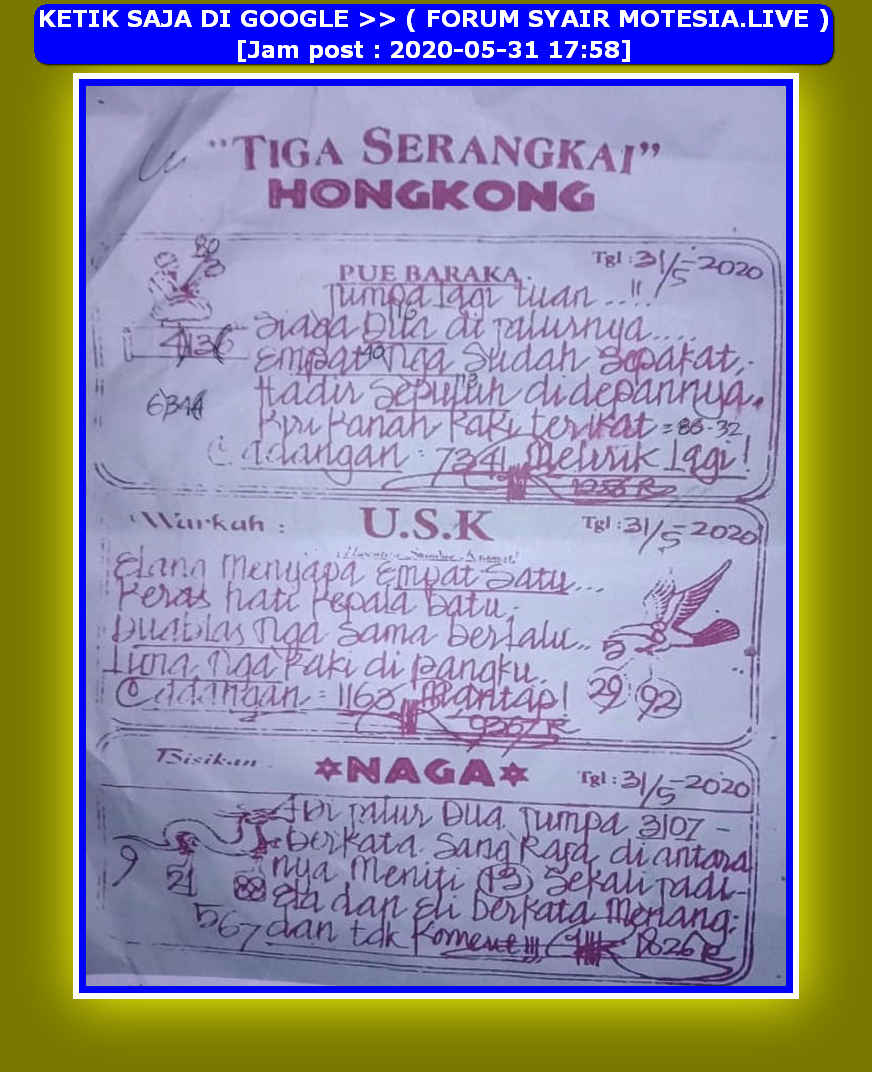 KETIK SAJA DI GOOGLE >> ( FORUM SYAIR MOTESIA.LIVE )
[Jam post : 2020-05-31 17:58]
"TIGA SERANGKAI"
HONGKONG
80
Tgl : 31/5-2020
PUE BARAKA
Jumpa lagi tuan ..!!
4136
Siaga Dita di jalurnya....
Empat nga Sudah Sepakat,
6344
Hadir Sepuluh didepannya.
Kiri Kanan Kaki terikat = 86-32
Cadangan : 7341 Melirik Lagi!
1256 R
Warkah : U.S.K Tgl : 31/5-2020
Elang Menyapa Empat Satu...
Keras hati Kepala batu.
Duablas nga Sama berlalu..
5
Lima nga Kaki di pangku.
Cadangan = 1163 Mantap!
29 92
9267 R
Bisikan NAGA Tgl : 31/5-2020
Jalur Dua Jumpa 3107 -
berkata Sang Raja diantara
9
nya Meniti (13) Sekali jadi-
21
88
Ela dan Eli berkata Menang:
567 dan tdk Koment!!!
1826 R